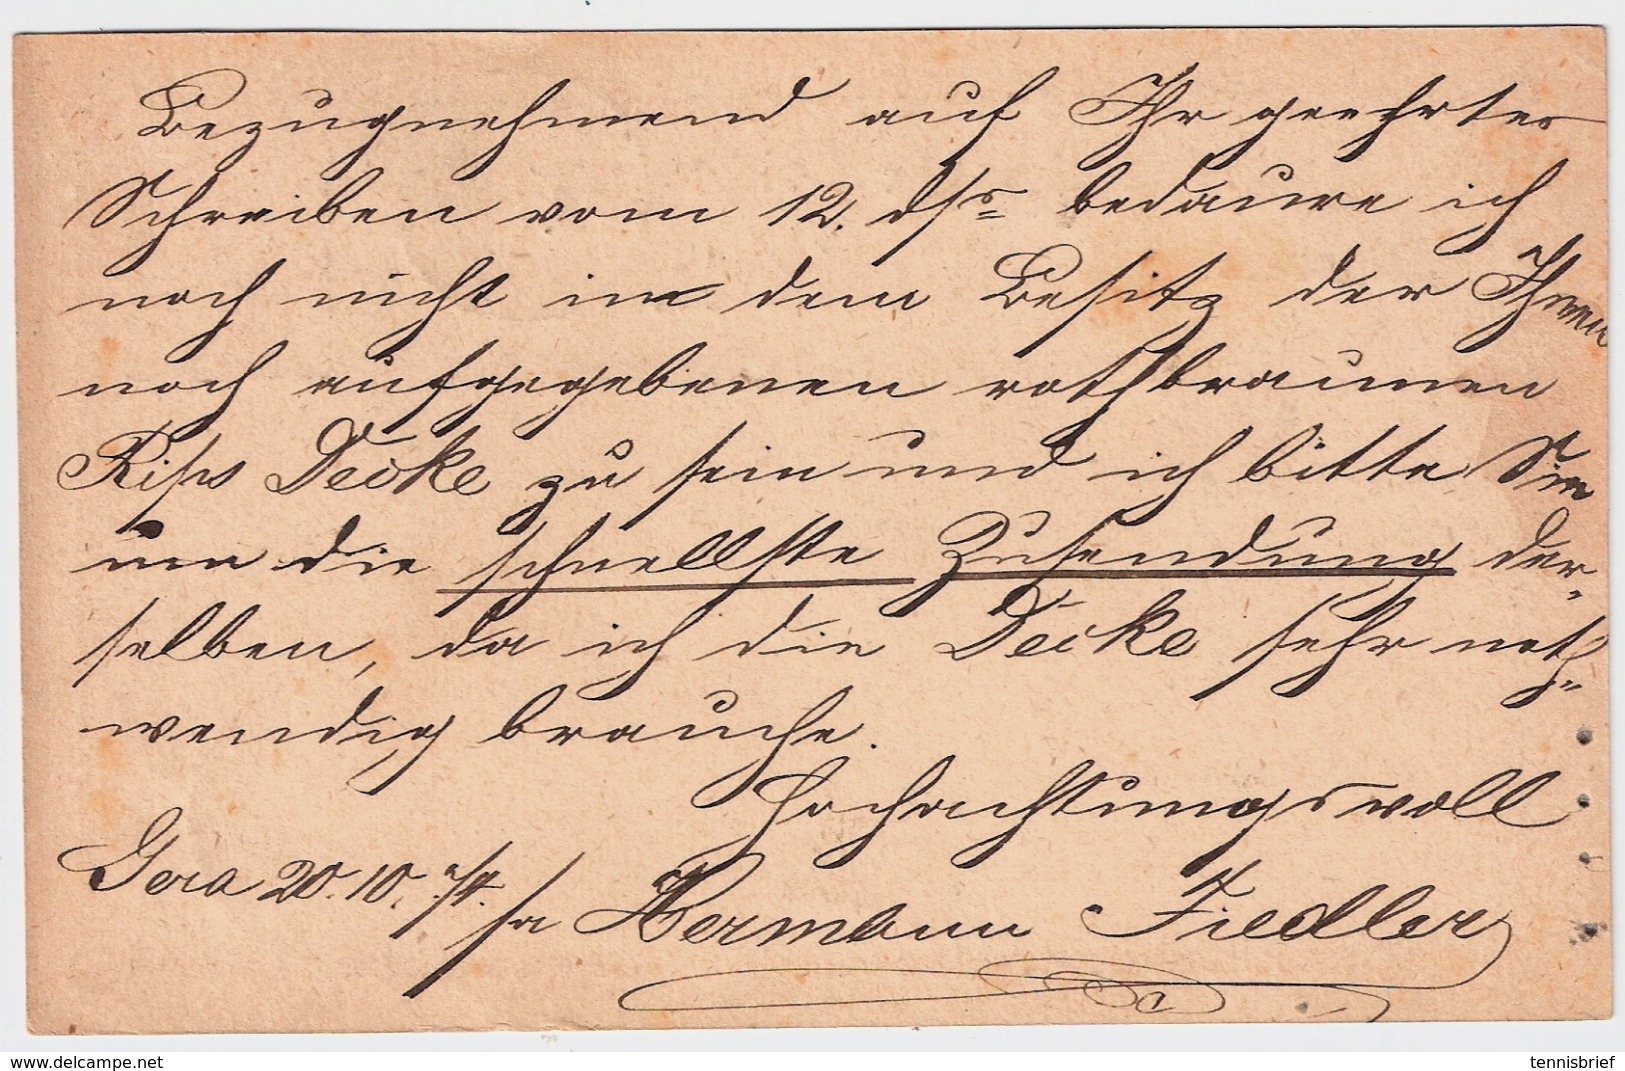 Bezugnehmend auf Ihr geehrtes
Schreiben vom 12. dss bedaure ich
noch nicht in dem Besitz der Ihnen
noch aufgegebenen rothbraunen
Rips Decke zu sein und ich bitte Sie
um die schnellste Zusendung der-
selben, da ich die Decke sehr noth-
wendig brauche.
Hochachtungsvoll
Gera 20.10. 74. Hermann Fiedler
delcampe.net
tennisbrief